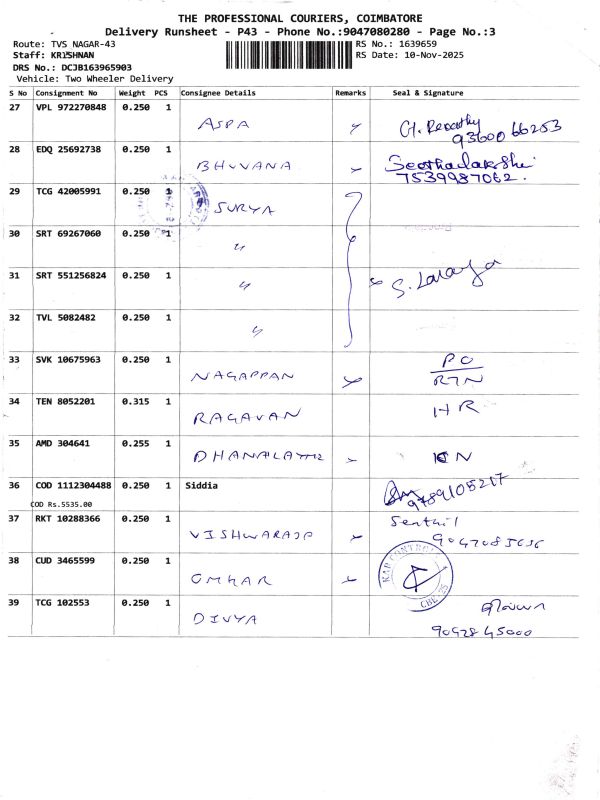 THE PROFESSIONAL COURIERS, COIMBATORE
Delivery Runsheet - P43 - Phone No.:9047080280 - Page No.:3
Route: TVS NAGAR-43 RS No.: 1639659
Staff: KRISHNAN RS Date: 10-Nov-2025
DRS No.: DCJB163965903
Vehicle: Two Wheeler Delivery
S No Consignment No Weight PCS Consignee Details Remarks Seal & Signature
27 VPL 972270848 0.250 1
ASPA G. Revathy
93600 66253
28 EDQ 25692738 0.250 1
BHUVANA Seethalakshmi
7539987062.
29 TCG 42005991 0.250 1
SURYA
30 SRT 69267060 0.250 1
〃
31 SRT 551256824 0.250 1
〃 S.
32 TVL 5082482 0.250 1
〃
33 SVK 10675963 0.250 1
NAGAPPAN PO
RTN
34 TEN 8052201 0.315 1
RAGAVAN HR
35 AMD 304641 0.255 1
36 COD 1112304488 0.250 1 Siddia
COD Rs.5535.00 9789105217
37 RKT 10288366 0.250 1 Senthil
VISHWARAJP 9047085636
38 CUD 3465599 0.250 1
OMKAR
39 TCG 102553 0.250 1
DIVYA திவ்யா
90428 45000